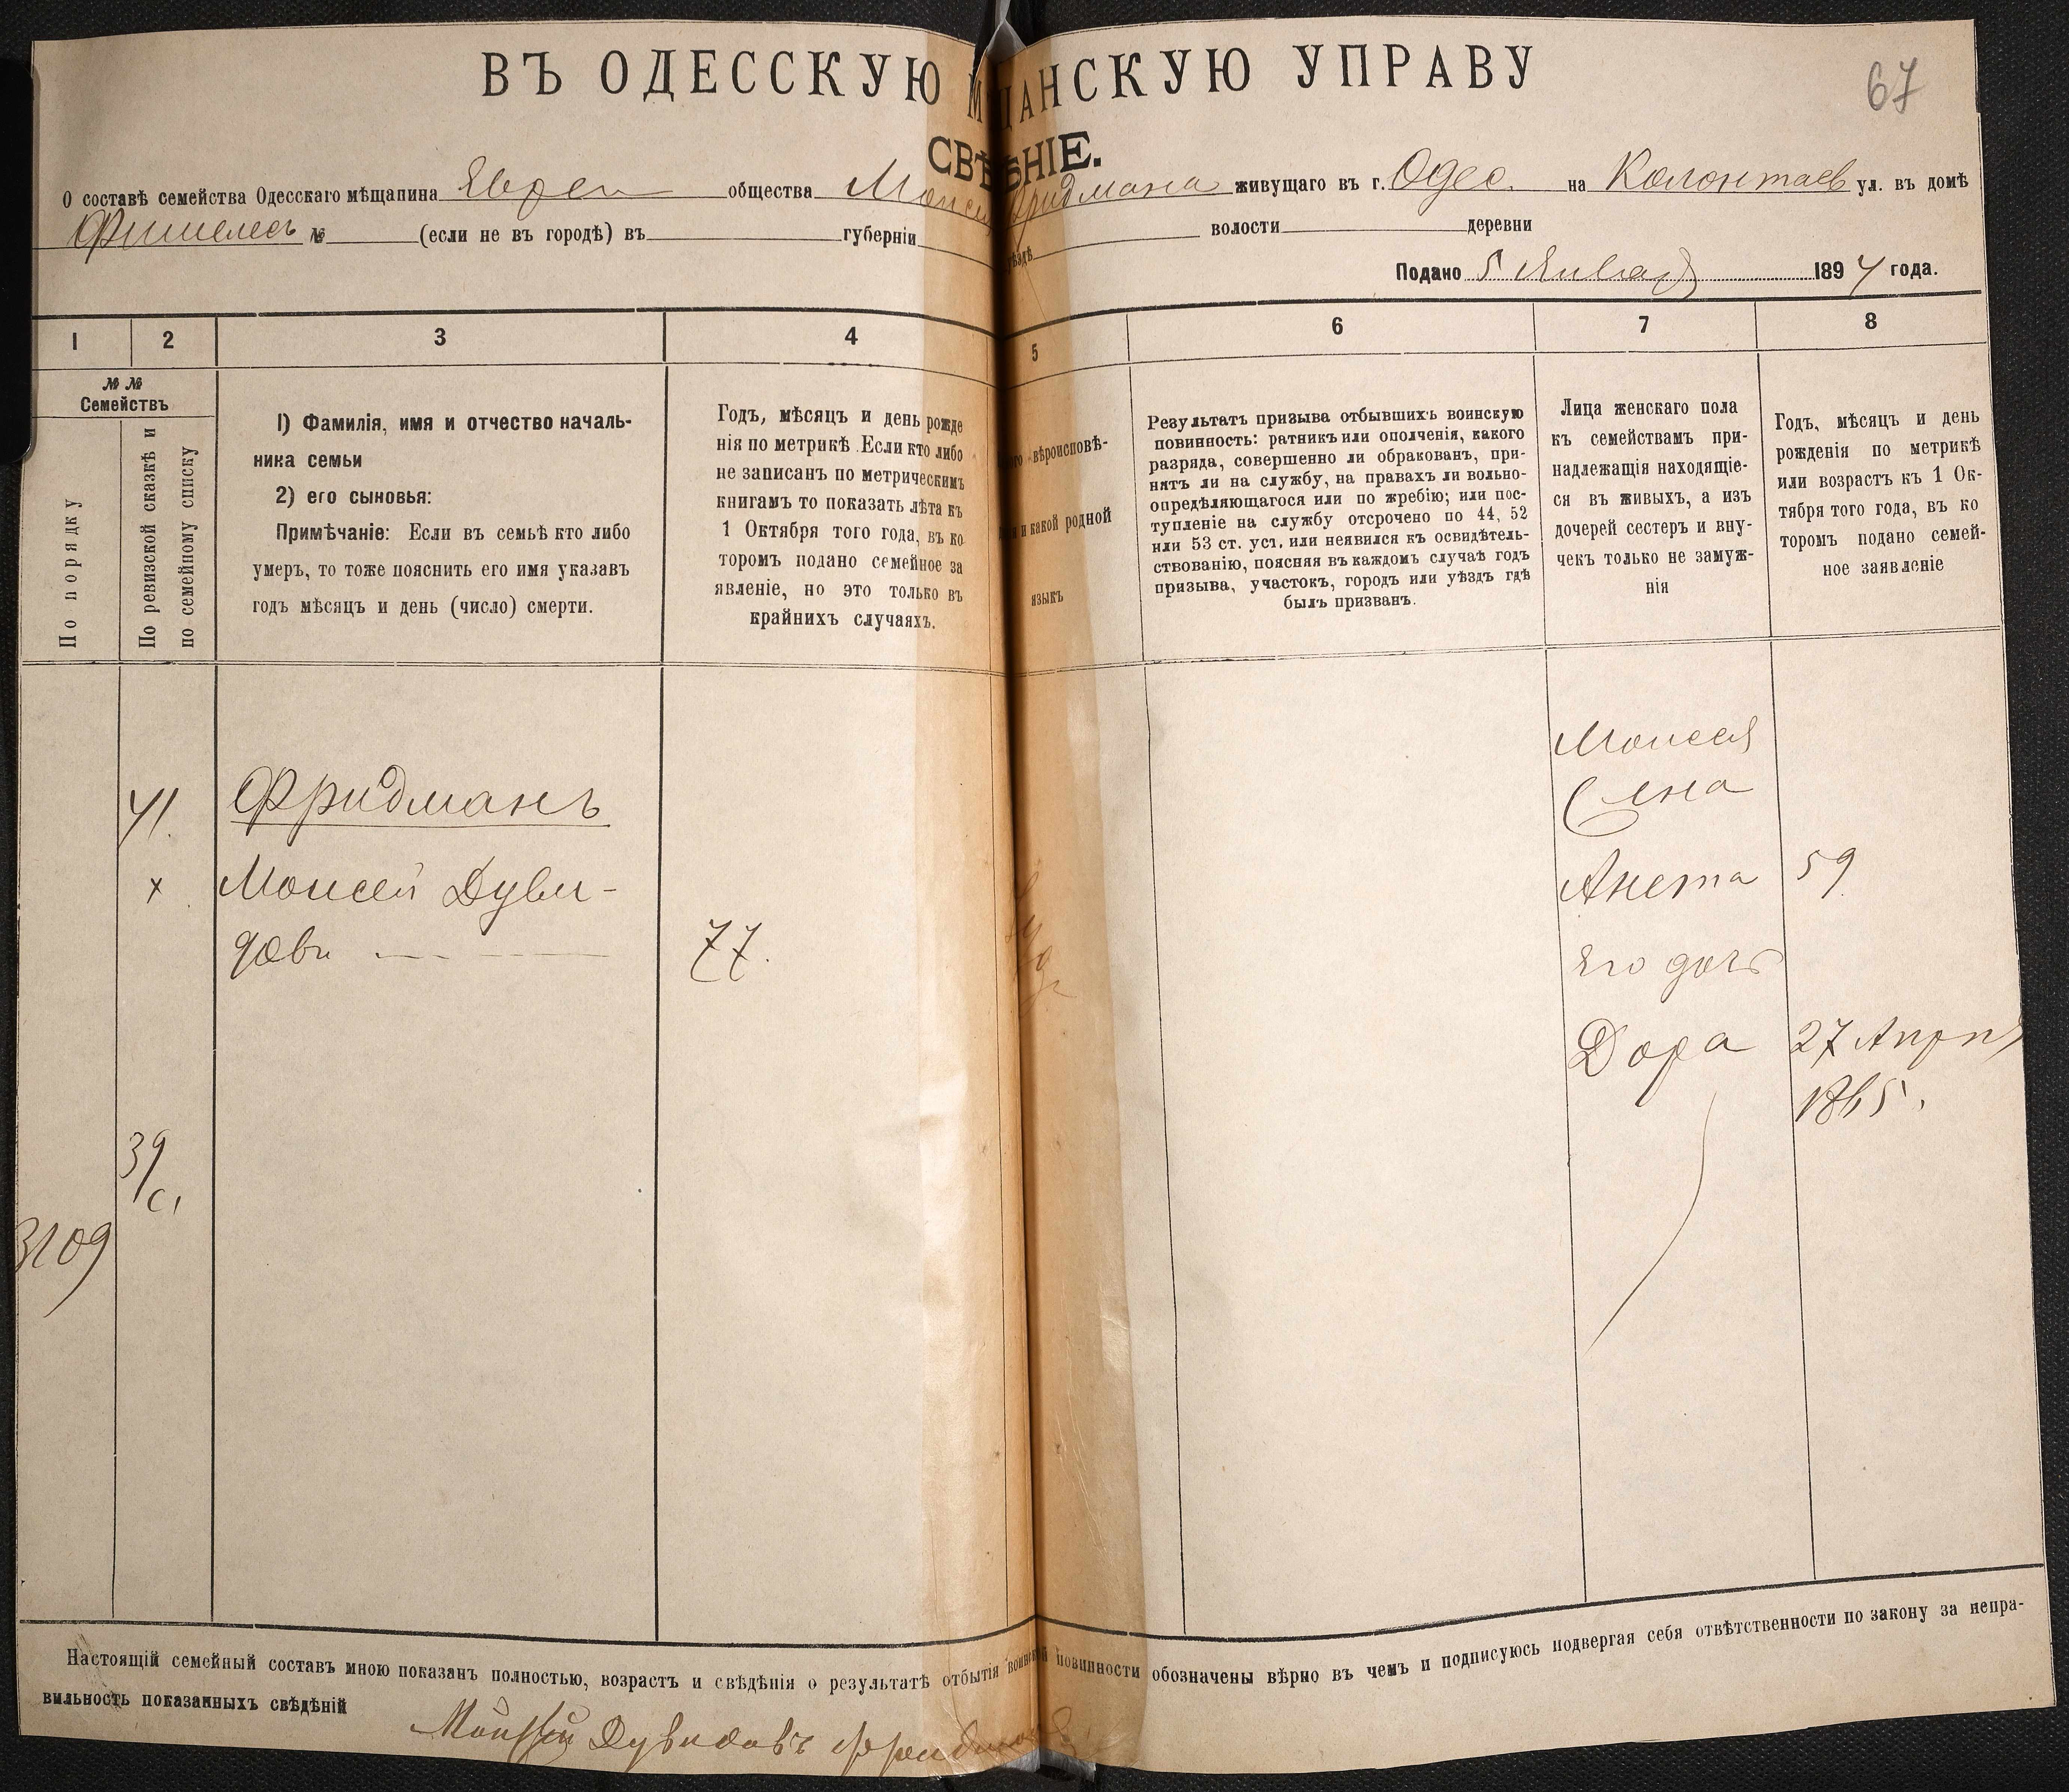 67
ВЪ ОДЕССКУЮ М ЩАНСКУЮ УПРАВУ
СВѢ ѢНІЕ.
О составѣ семейства Одесскаго мѣщанина Евреи общества Моисе Фридмана живущаго въ г. Одес. на Колонтаев ул. въ домѣ
Фишелесъ № (если не въ городѣ) въ губерніи уѣздѣ волости деревни
Подано 5 Января 1894 года.
1 2 3 4 5 6 7 8
№ №
Семействъ
По порядку
По ревизской сказкѣ и
по семейному списку
1) Фамилія, имя и отчество началь-
ника семьи
2) его сыновья:
Примѣчаніе: Если въ семьѣ кто либо
умеръ, то тоже пояснить его имя указавъ
годъ мѣсяцъ и день (число) смерти.
Годъ, мѣсяцъ и день рожде
нія по метрикѣ. Если кто либо
не записанъ по метрическимъ
книгамъ то показать лѣта къ
1 Октября того года, въ ко
торомъ подано семейное за
явленіе, но это только въ
крайнихъ случаяхъ.
вѣроисповѣ-
и какой родной
языкъ
Результатъ призыва отбывшихъ воинскую
повинность: ратникъ или ополченія, какого
разряда, совершенно ли обракованъ, при-
нятъ ли на службу, на правахъ ли вольно-
опредѣляющагося или по жребію; или пос-
тупленіе на службу отсрочено по 44, 52
или 53 ст. уст. или неявился къ освидѣтель-
ствованію, поясняя въ каждомъ случаѣ годъ
призыва, участокъ, городъ или уѣздъ гдѣ
былъ призванъ.
Лица женскаго пола
къ семействамъ при-
надлежащія находящіе-
ся въ живыхъ, а изъ
дочерей сестеръ и вну-
чекъ только не замуж-
нія
Годъ, мѣсяцъ и день
рожденія по метрикѣ
или возрастъ къ 1 Ок-
тября того года, въ ко
торомъ подано семей-
ное заявленіе
41. Фридманъ
х Моисей Дуви-
довъ 77.
39/с,
3109
Моисея
жена
Анета 59
Его дочь
Дора 27 Апрѣл
1865.
Настоящій семейный составъ мною показанъ полностью, возрастъ и свѣдѣнія о результатѣ отбытія воинской повинности обозначены вѣрно въ чемъ и подписуюсь подвергая себя отвѣтственности по закону за непра-
вильность показанныхъ свѣдѣній
Мойсей Дувидовъ Фридманъ